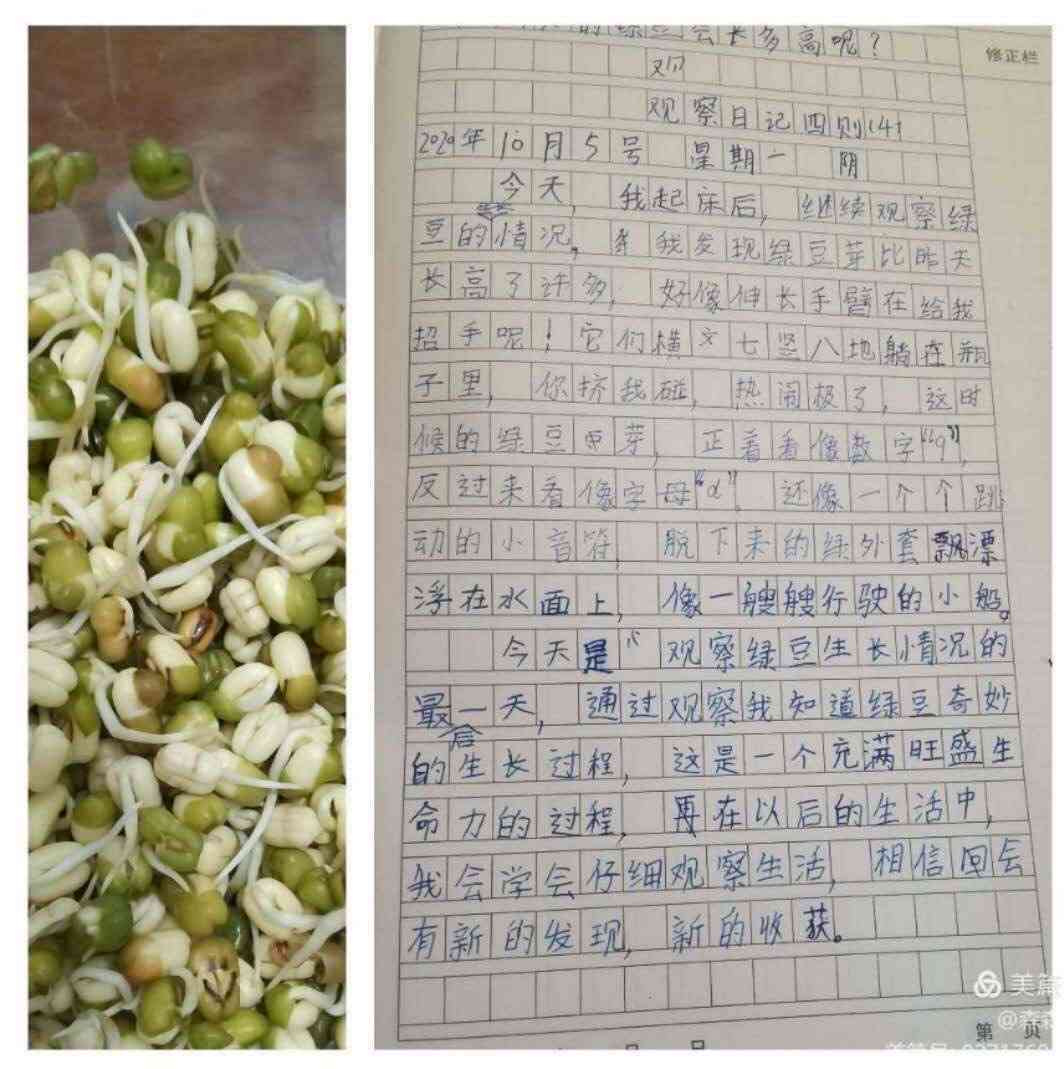 的绿豆会长多高呢？
修正栏
观
观察日记四则(4)
2020年10月5号 星期一 阴
今天，我起床后，继续观察绿
豆的情况，我发现绿豆芽比昨天
长高了许多，好像伸长手臂在给我
招手呢！它们横七竖八地躺在瓶
子里，你挤我碰，热闹极了，这时
候的绿豆芽，正着看像数字“9”，
反过来看像字母“a”，还像一个个跳
动的小音符，脱下来的绿外套飘漂
浮在水面上，像一艘艘行驶的小船。
今天是“观察绿豆生长情况的
最后一天，通过观察我知道绿豆奇妙
的生长过程，这是一个充满旺盛生
命力的过程，再在以后的生活中，
我会学会仔细观察生活，相信回会
有新的发现，新的收获。
美篇
@森
第 页